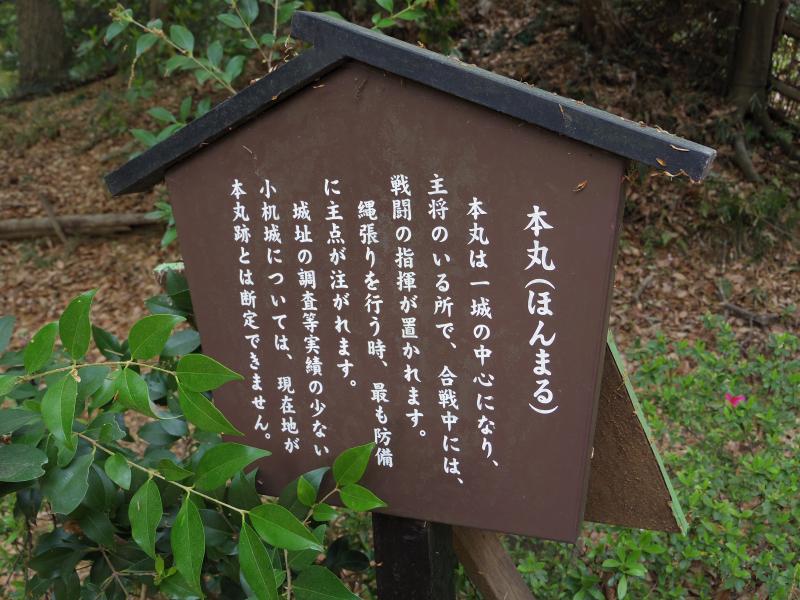 本丸(ほんまる)
本丸は一城の中心になり、
主将のいる所で、合戦中には、
戦闘の指揮が置かれます。
縄張りを行う時、最も防備
に主点が注がれます。
城址の調査等実績の少ない
小机城については、現在地が
本丸跡とは断定できません。